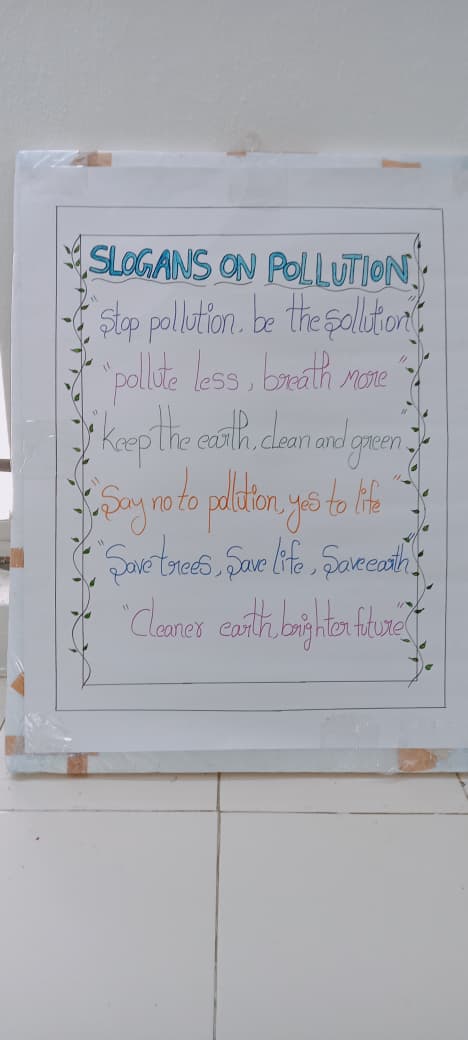 SLOGANS ON POLLUTION
"Stop pollution, be the sollution"
"pollute less, breath more"
"keep the earth, clean and green"
"Say no to pollution, yes to life"
"Save trees, Save life, Save earth"
"Cleaner earth, brighter future"